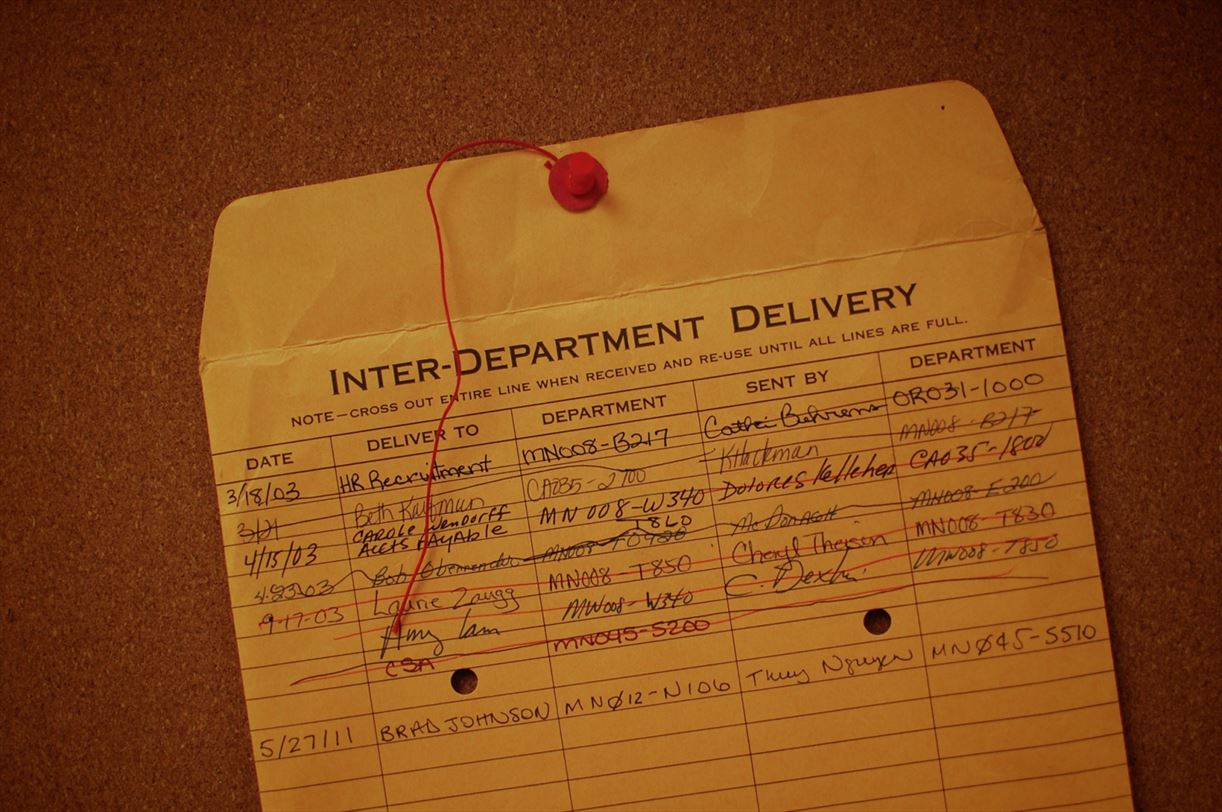 INTER-DEPARTMENT DELIVERY
NOTE—CROSS OUT ENTIRE LINE WHEN RECEIVED AND RE-USE UNTIL ALL LINES ARE FULL.
DATE DELIVER TO DEPARTMENT SENT BY DEPARTMENT
3/18/03 HR Recruitment MN008-B217 Cathi Behrens OR031-1000
3/21 Beth Kaufman CA035-2700 K Hackman MN008-B217
4/15/03 CAROLE WENDORFF ACCTS PAYABLE MN 008-W340 Dolores Kelleher CA035-1800
1860
4-23-03 Bob MN008-T0420 McDonagh MN008-E200
9-17-03 Laurie Zaugg MN008-T850 Cheryl Theisen MN008-T830
Amy Lam MN008-W340 C. MN008-T850
CSA MN045-S200
5/27/11 BRAD JOHNSON MNØ12-N106 Thuy Nguyen MNØ45-S510